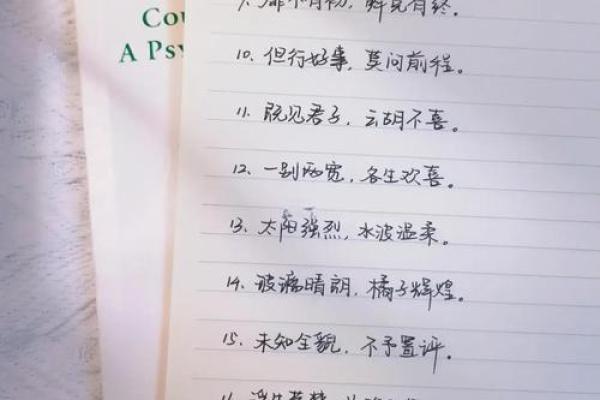 Cou
A Psy
9. 靡不有初，鲜克有终。
10. 但行好事，莫问前程。
11. 既见君子，云胡不喜。
12. 一别两宽，各生欢喜。
13. 太阳强烈，水波温柔。
14. 玻璃晴朗，橘子辉煌。
15. 未知全貌，不予置评。